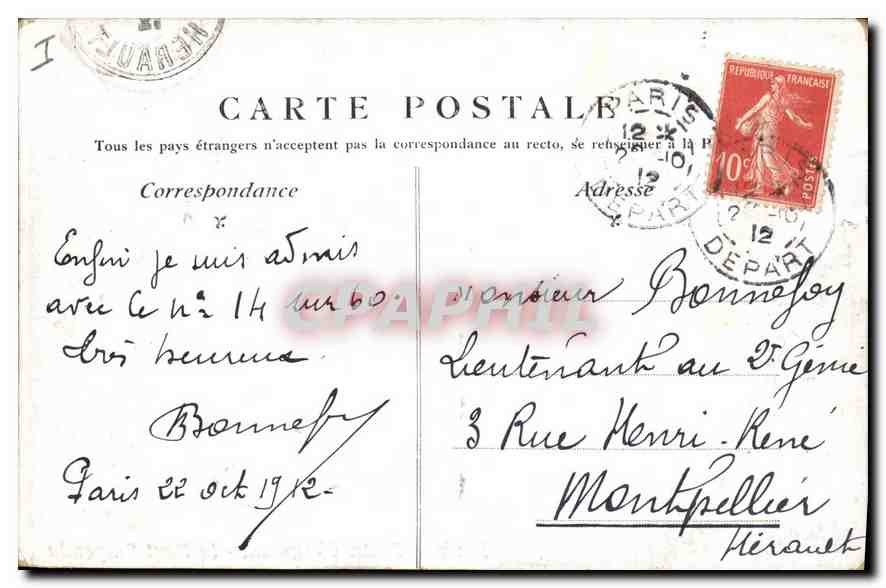 I
HERAULT
CARTE POSTALE
Tous les pays étrangers n'acceptent pas la correspondance au recto, se renseigner à la P
Correspondance
Enfin je suis admis
avec le no 14 sur 60.
très heureux.
Bonnefoy
Paris 22 oct 1912-
Adresse
Monsieur Bonnefoy
Lieutenant au 2e Génie
3 Rue Henri-René
Montpellier
Hérault
REPUBLIQUE FRANÇAISE
10c
POSTES
PARIS
12
22-10
12
DEPART
12
DEPART
CPAPHIL